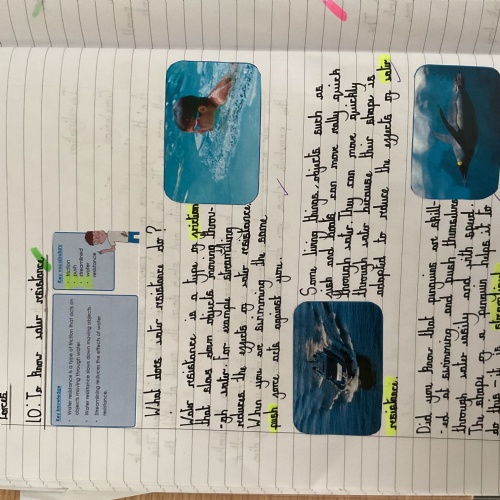 forces
LO: To know water resistance
Key knowledge
• Water resistance is a type of friction that acts on
objects moving through water.
• Water resistance slows down moving objects.
• Streamlining reduces the effects of water
resistance.
Key vocabulary
• friction
• push
• streamlined
• water
resistance
What does water resistance do?
Water resistance is a type of friction
that slows down objects moving throu-
-gh water. For example streamlining
reduces the effects of water resistance.
When you are swimming the same
push force acts against you.
Some living things, objects such as
fish and boats can move really quick
through water. They can move quickly
through water because their shape is
adapted to reduce the effects of water
resistance.
Did you know that penguins are skill-
-ed at swimming and push themselves
through water easily and with speed.
The shape of a penguin helps it to
do this it is